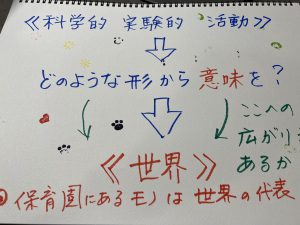 ≪科学的 実験的 活動≫
どのような形から意味を?
ここへの
広がり
あるか
≪世界≫
保育園にあるモノは世界の代表